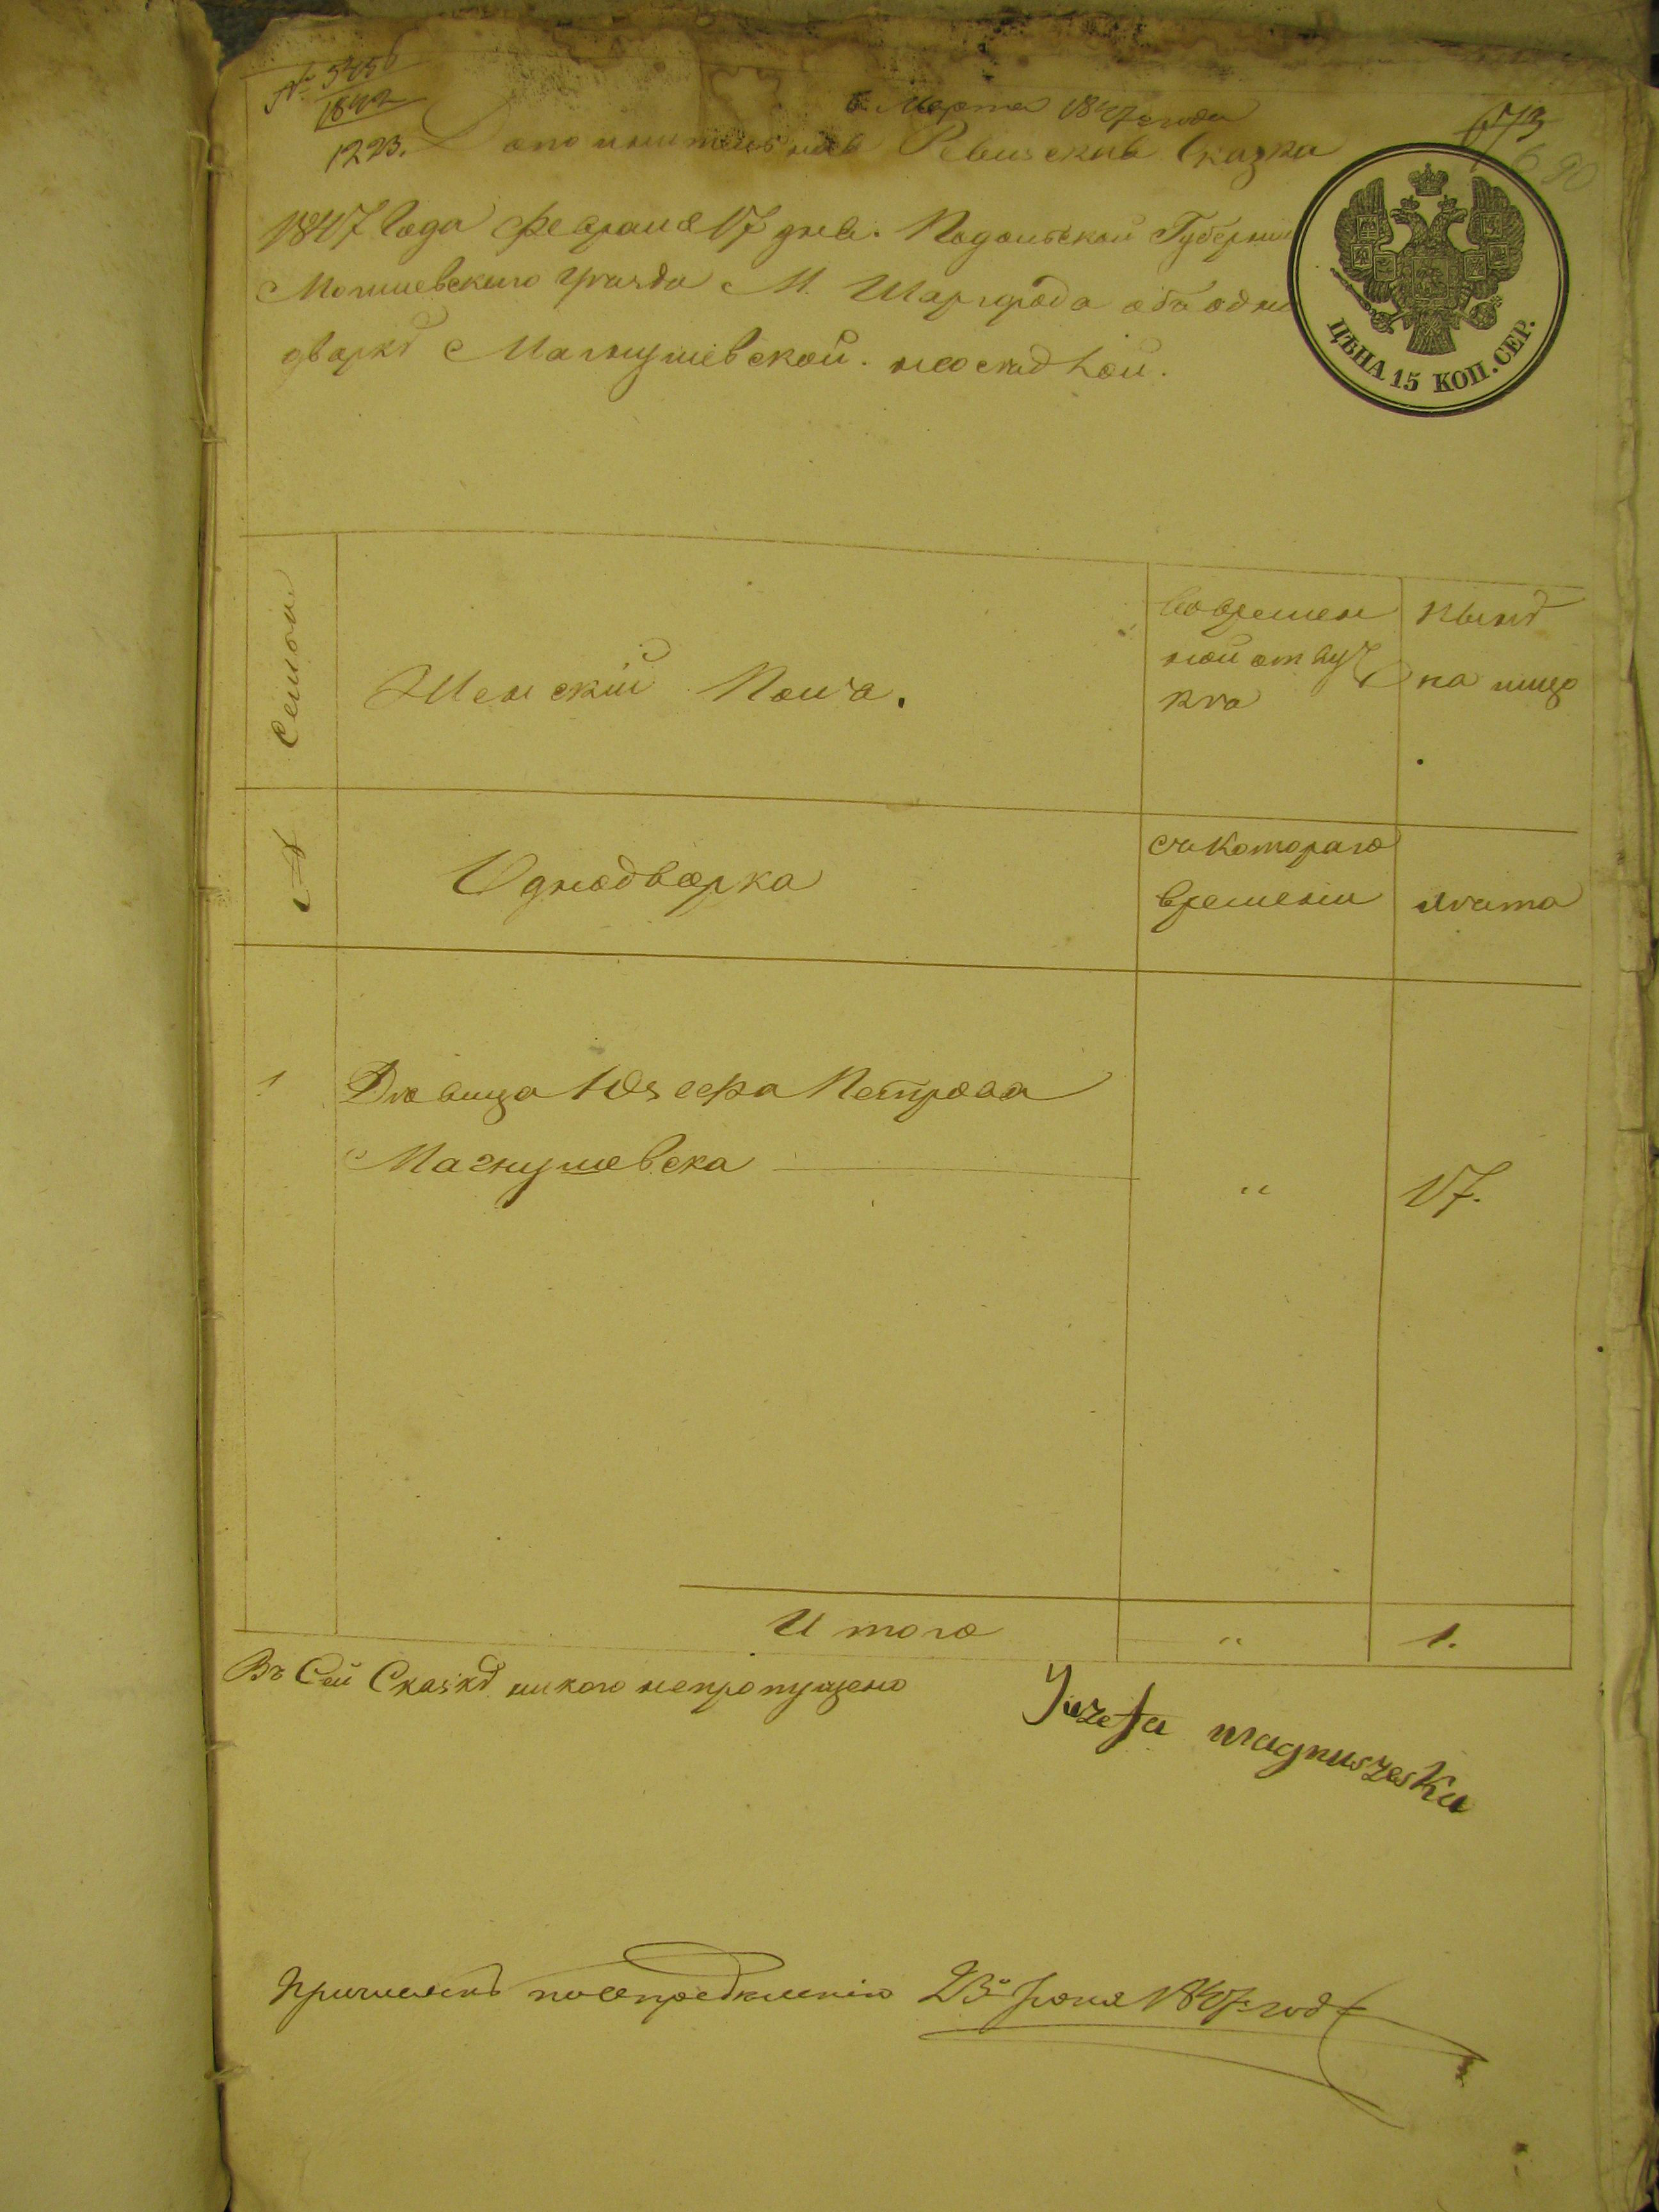 № 5456
1842
1223.
6. Марта 1847 года
673
690
Дополнительная Ревизская Сказка
1847 Года Февраля 17 дня. Подольской Губернии
Могилевского Уѣзда М. Шаргорода объ одно
дворкѣ Магнушевской. неоседлой.
ЦѢНА 15 КОП. СЕР.
Семьи
Женскій Полъ.
Вовремен
ной отлуч
кѣ
Нынѣ
на лицо
№
Однодворка
съ Котораго
времени
лѣта
1
Дѣвица Юзефа Петрова
Магнушевска
"
17.
Итого
"
1.
Въ Сей Сказкѣ никого непропущено
Juzefa Magnuszeska
Причисленъ поопредѣленію 23 Іюня 1847 год